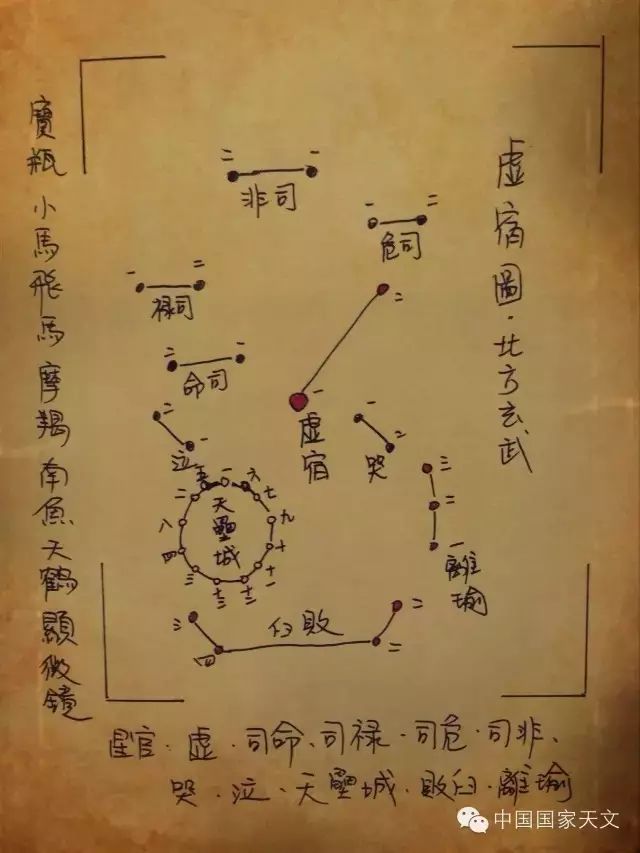 虚宿圖·北方玄武
寶瓶 小馬 飛馬 摩羯 南魚 天鶴 顯微鏡
二 一
非司
一 二
危司
二
一 二
禄司
二 一
命司
一
虚宿
二 一
泣
一 二
哭
五 一 六
二 七
八 九
四 十
三 十一
十三 十二
天壘城
三
二
一
離瑜
三 二
臼敗
四 二
星官·虚·司命、司禄·司危·司非、
哭·泣·天壘城·敗臼·離瑜
中国国家天文